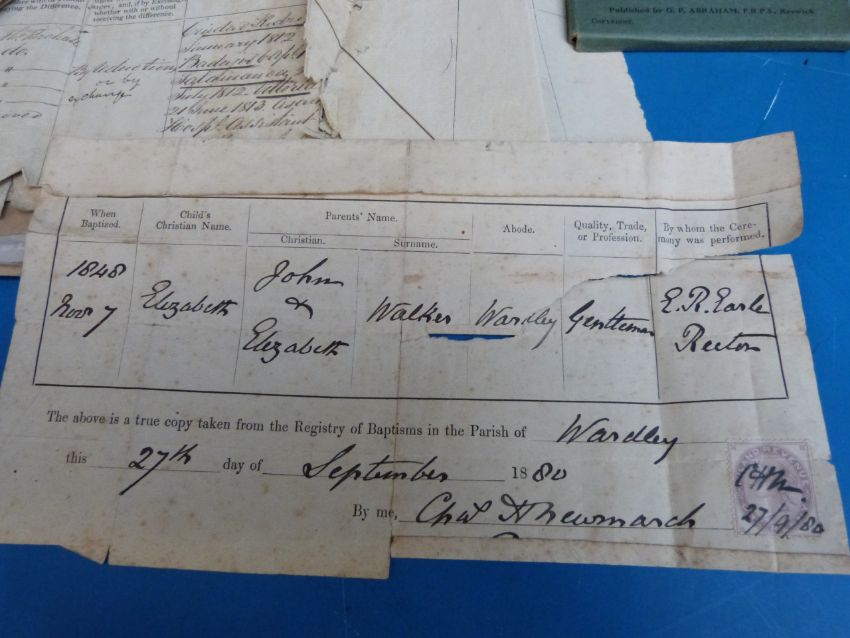 ying the Difference.
slopes; and, if by Exchange,
whether with or without
receiving the difference.
January 1812
By Reduction
or by
exchange
Badajos
July 1812. Vittoria
21 June 1813.
Hosp. Assistant
Published by G. P. ABRAHAM, F.R.P.S., Keswick
COPYRIGHT.
When Baptized.
Child's Christian Name.
Parents' Name.
Christian.
Surname.
Abode.
Quality, Trade, or Profession.
By whom the Ceremony was performed.
1848
Novr 7
Elizabeth
John
&
Elizabeth
Walker
Wardley
Gentleman
E. R. Earle
Rector
The above is a true copy taken from the Registry of Baptisms in the Parish of Wardley
this 27th day of September 1880
By me, Chas H Newmarch
CHN.
27/9/80